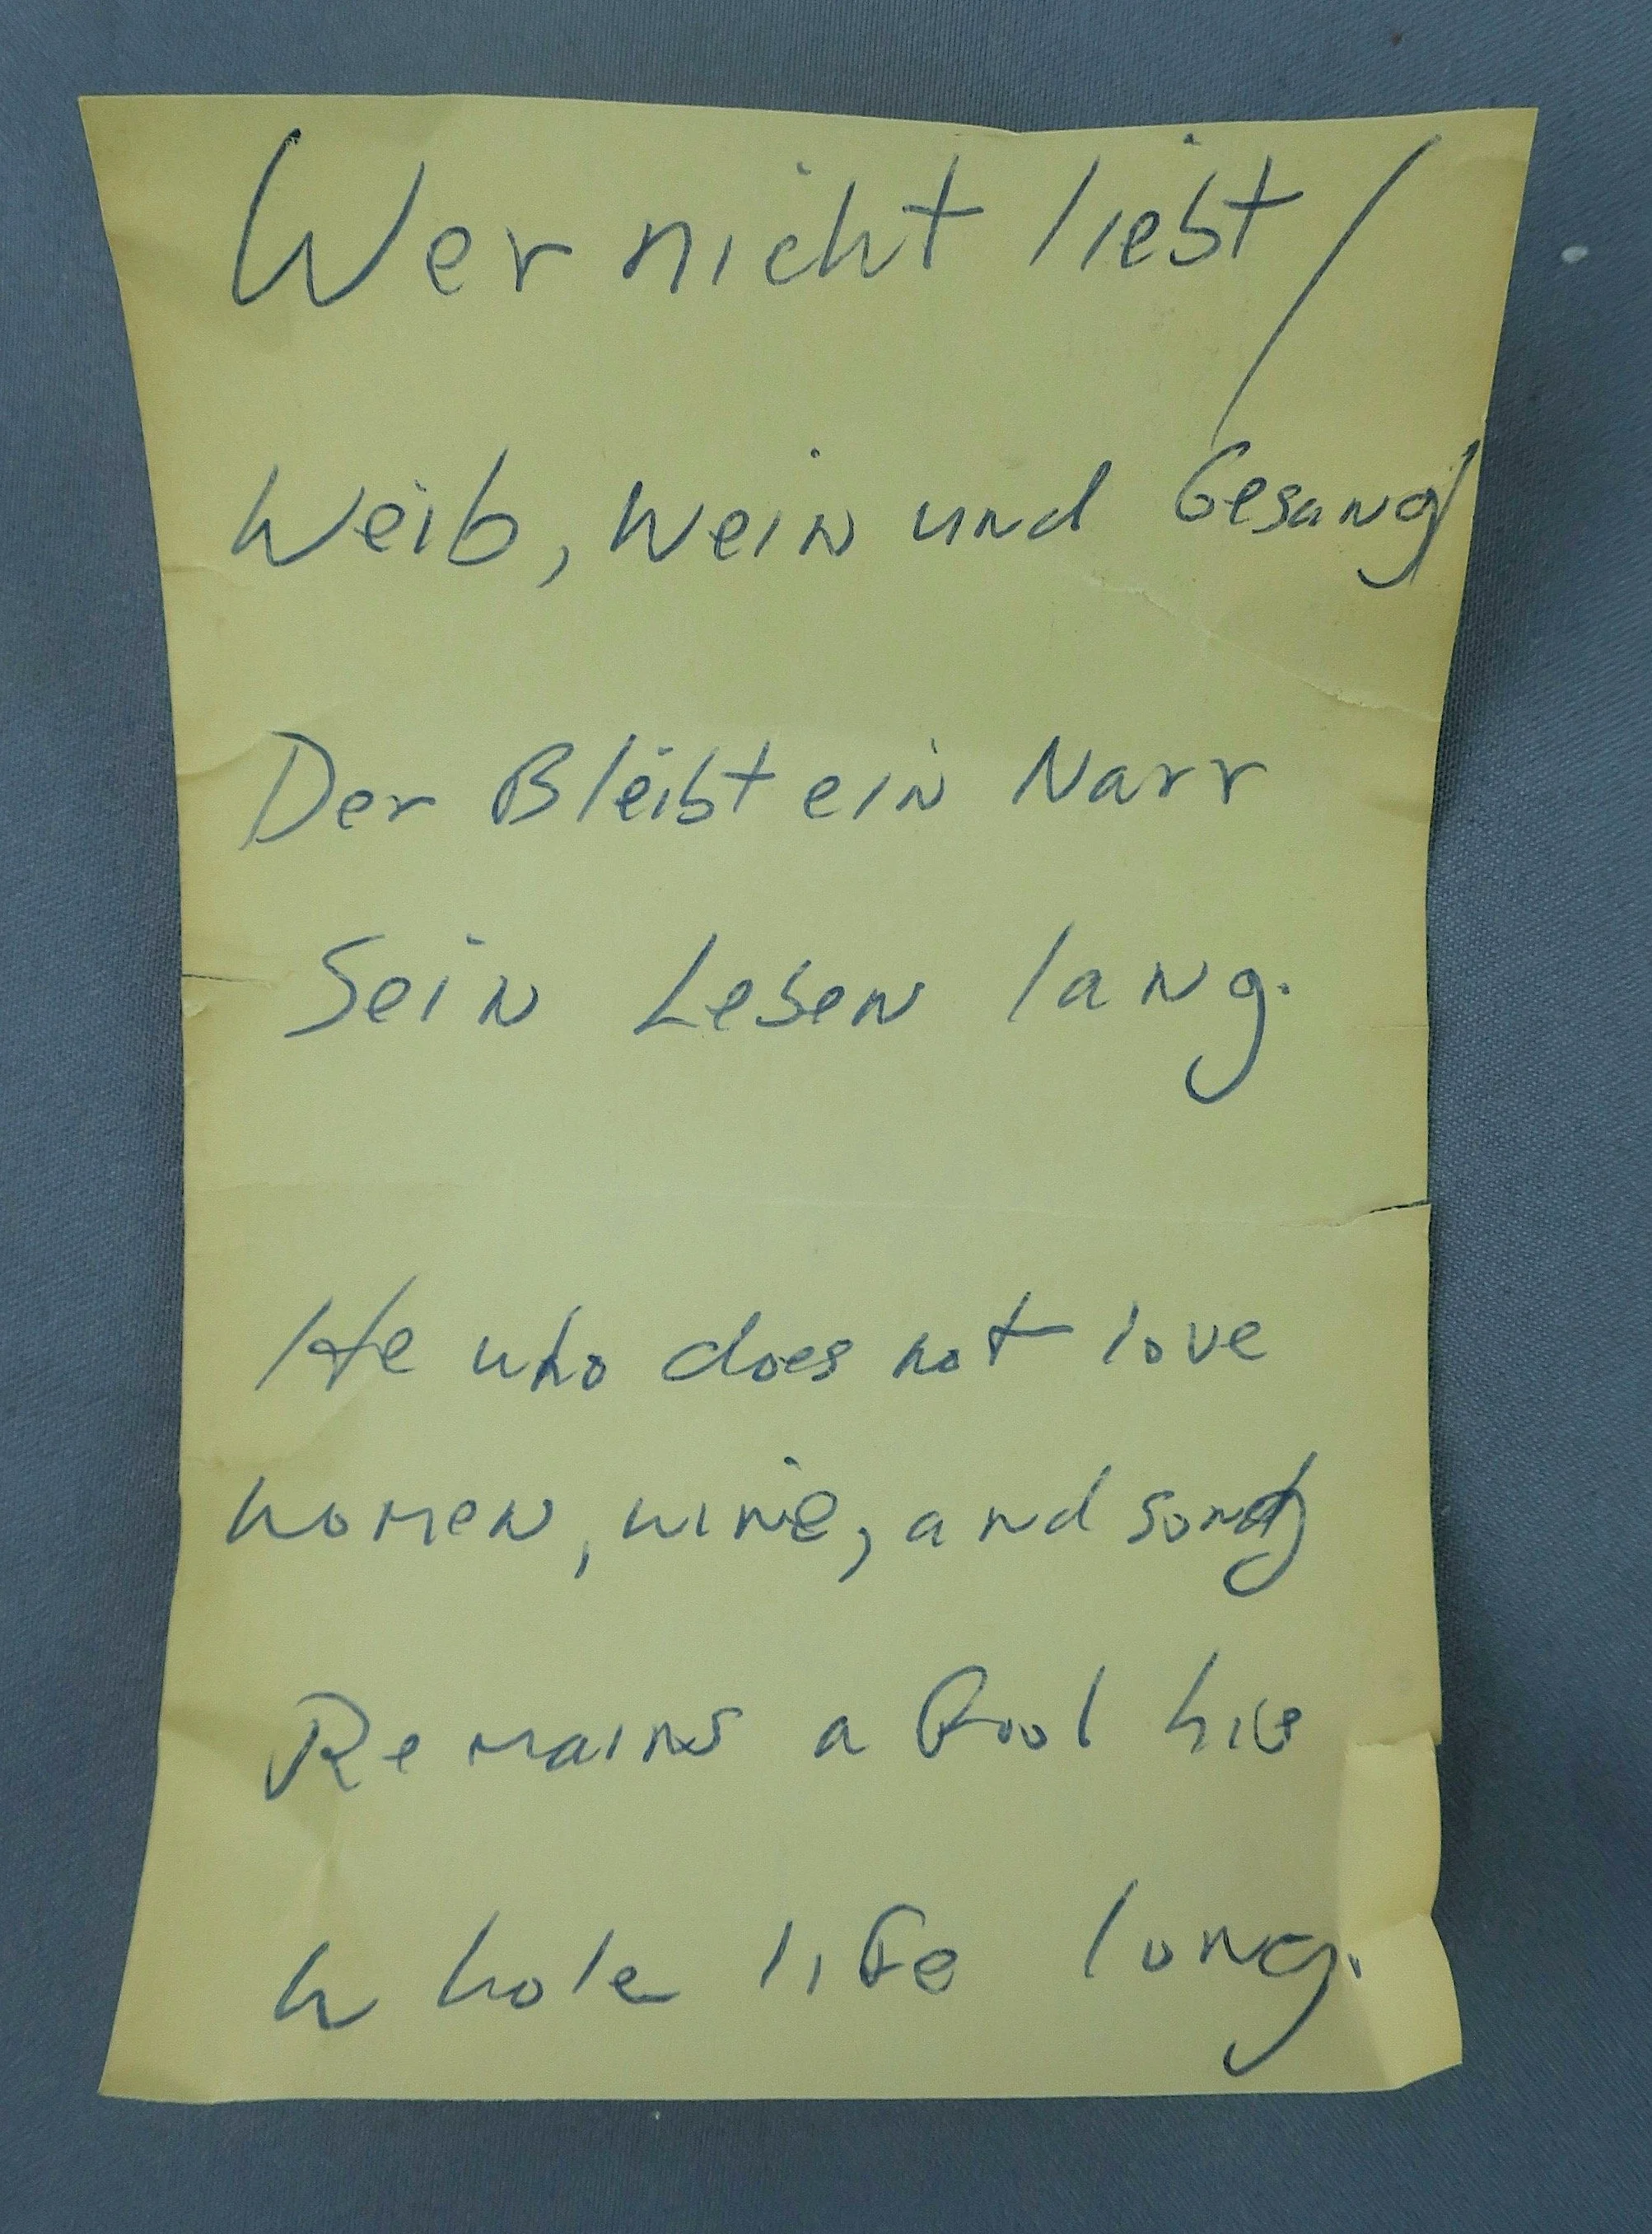 Wer nicht liebt /
Weib, Wein und Gesang
Der Bleibt ein Narr
Sein Leben lang.
He who does not love
women, wine, and song
Remains a fool his
whole life long.